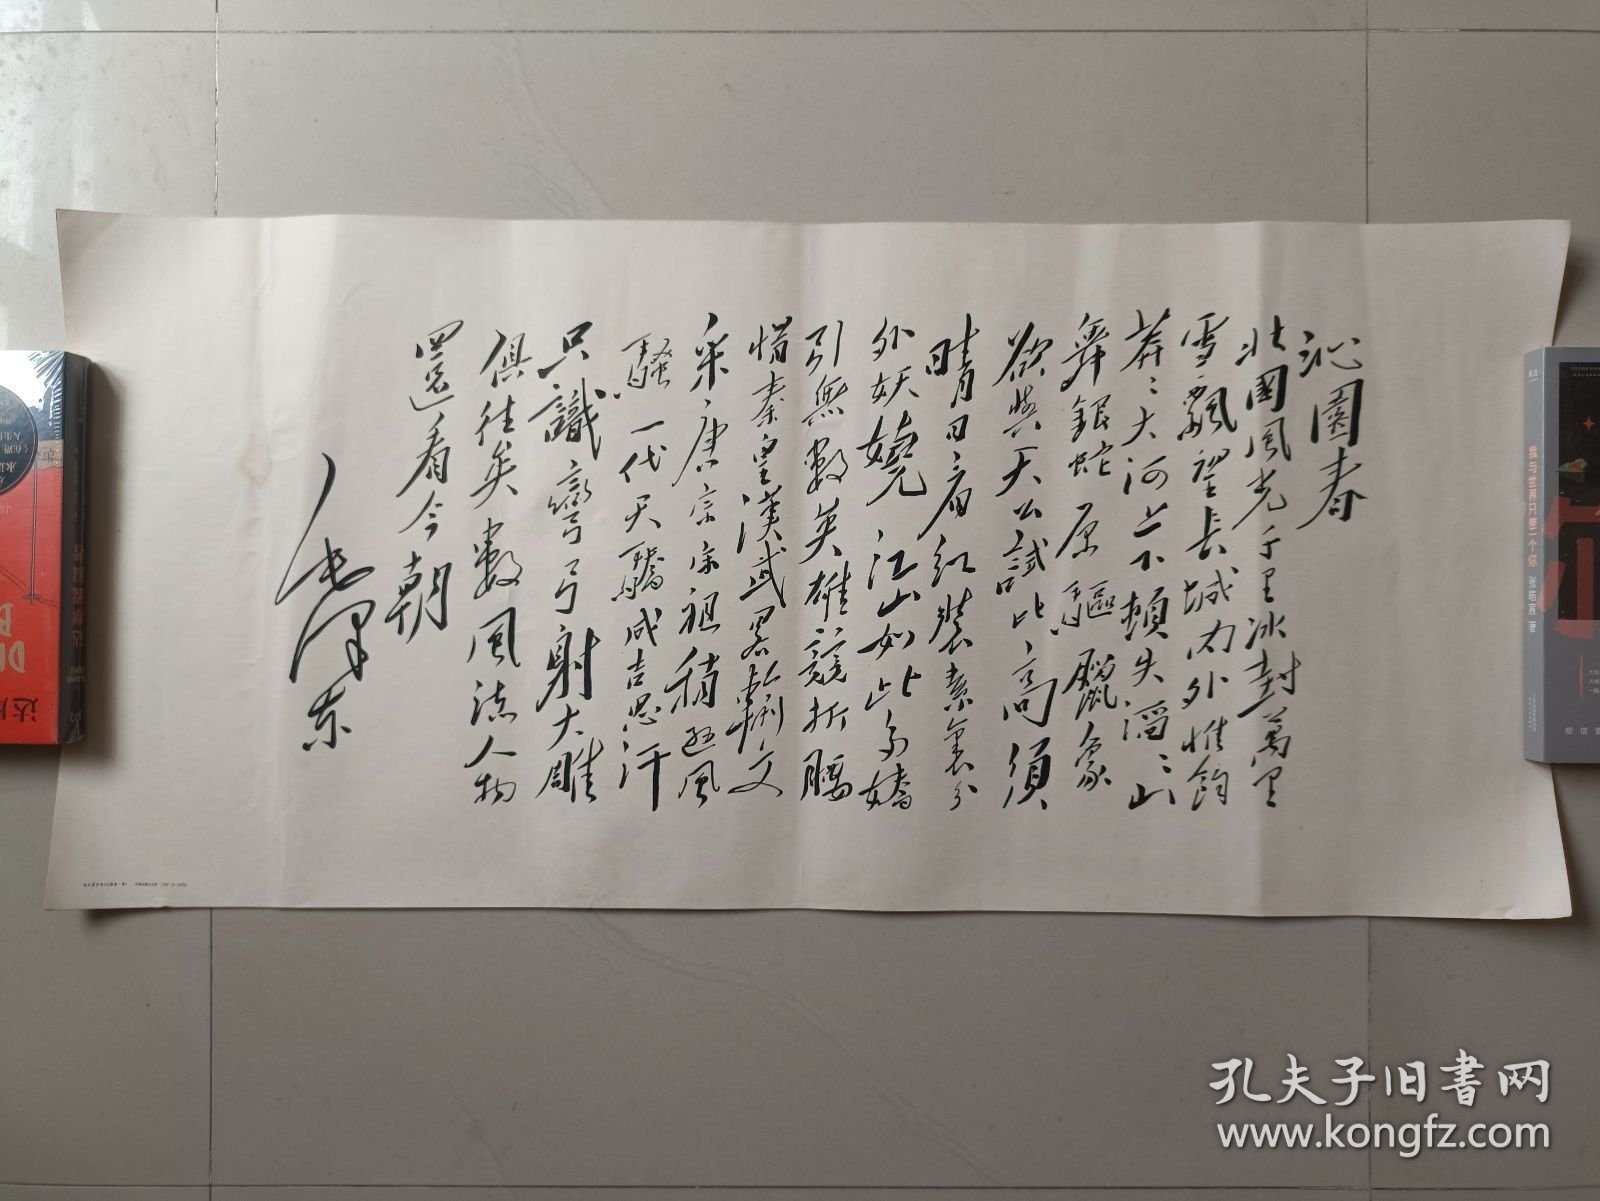 沁園春
北國風光千里冰封萬里
雪飄望長城内外惟餘
莽〻大河上下頓失滔〻山
舞銀蛇原驅臘象
欲與天公試比高須
晴日看紅裝素裹分
外妖嬈江山如此多嬌
引無數英雄競折腰
惜秦皇漢武略輸文
采唐宗宋祖稍遜風
騷一代天驕成吉思汗
只識彎弓射大雕
俱往矣數風流人物
還看今朝
毛澤东
我与世界只差一个你 张皓宸 著
孔夫子旧书网
www.kongfz.com